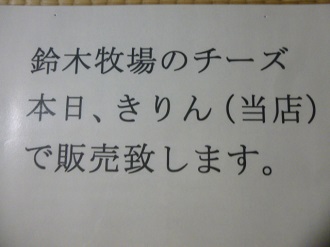 鈴木牧場のチーズ
本日、きりん(当店)
で販売致します。